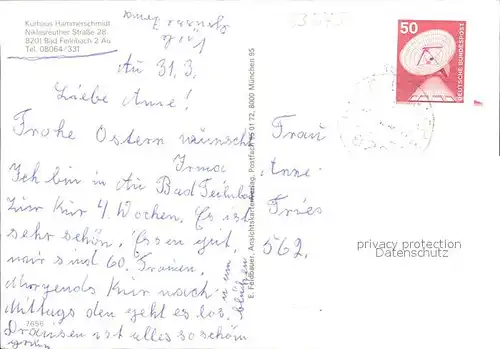 Kurhaus Hammerschmidt
Niklasreuther Straße 28
8201 Bad Feilnbach 2 Au
Tel. 08064/331
Au 31.3.
Liebe Anne!
Frohe Ostern wünscht
Irma
Ich bin in Au Bad Feilnba
zur Kur 4 Wochen. Es ist
sehr schön. Essen gut,
wir sind 60 Frauen.
Morgends Kur nach-
mittags den geht es los.
Draussen ist alles so schön
grün
u.
blühen
7656
E. Feldbauer, Ansichtskartenverlag, Postfach 15 01 72, 8000 München 65
50
DEUTSCHE BUNDESPOST
Frau
Anne
Fries
562
privacy protection
Datenschutz